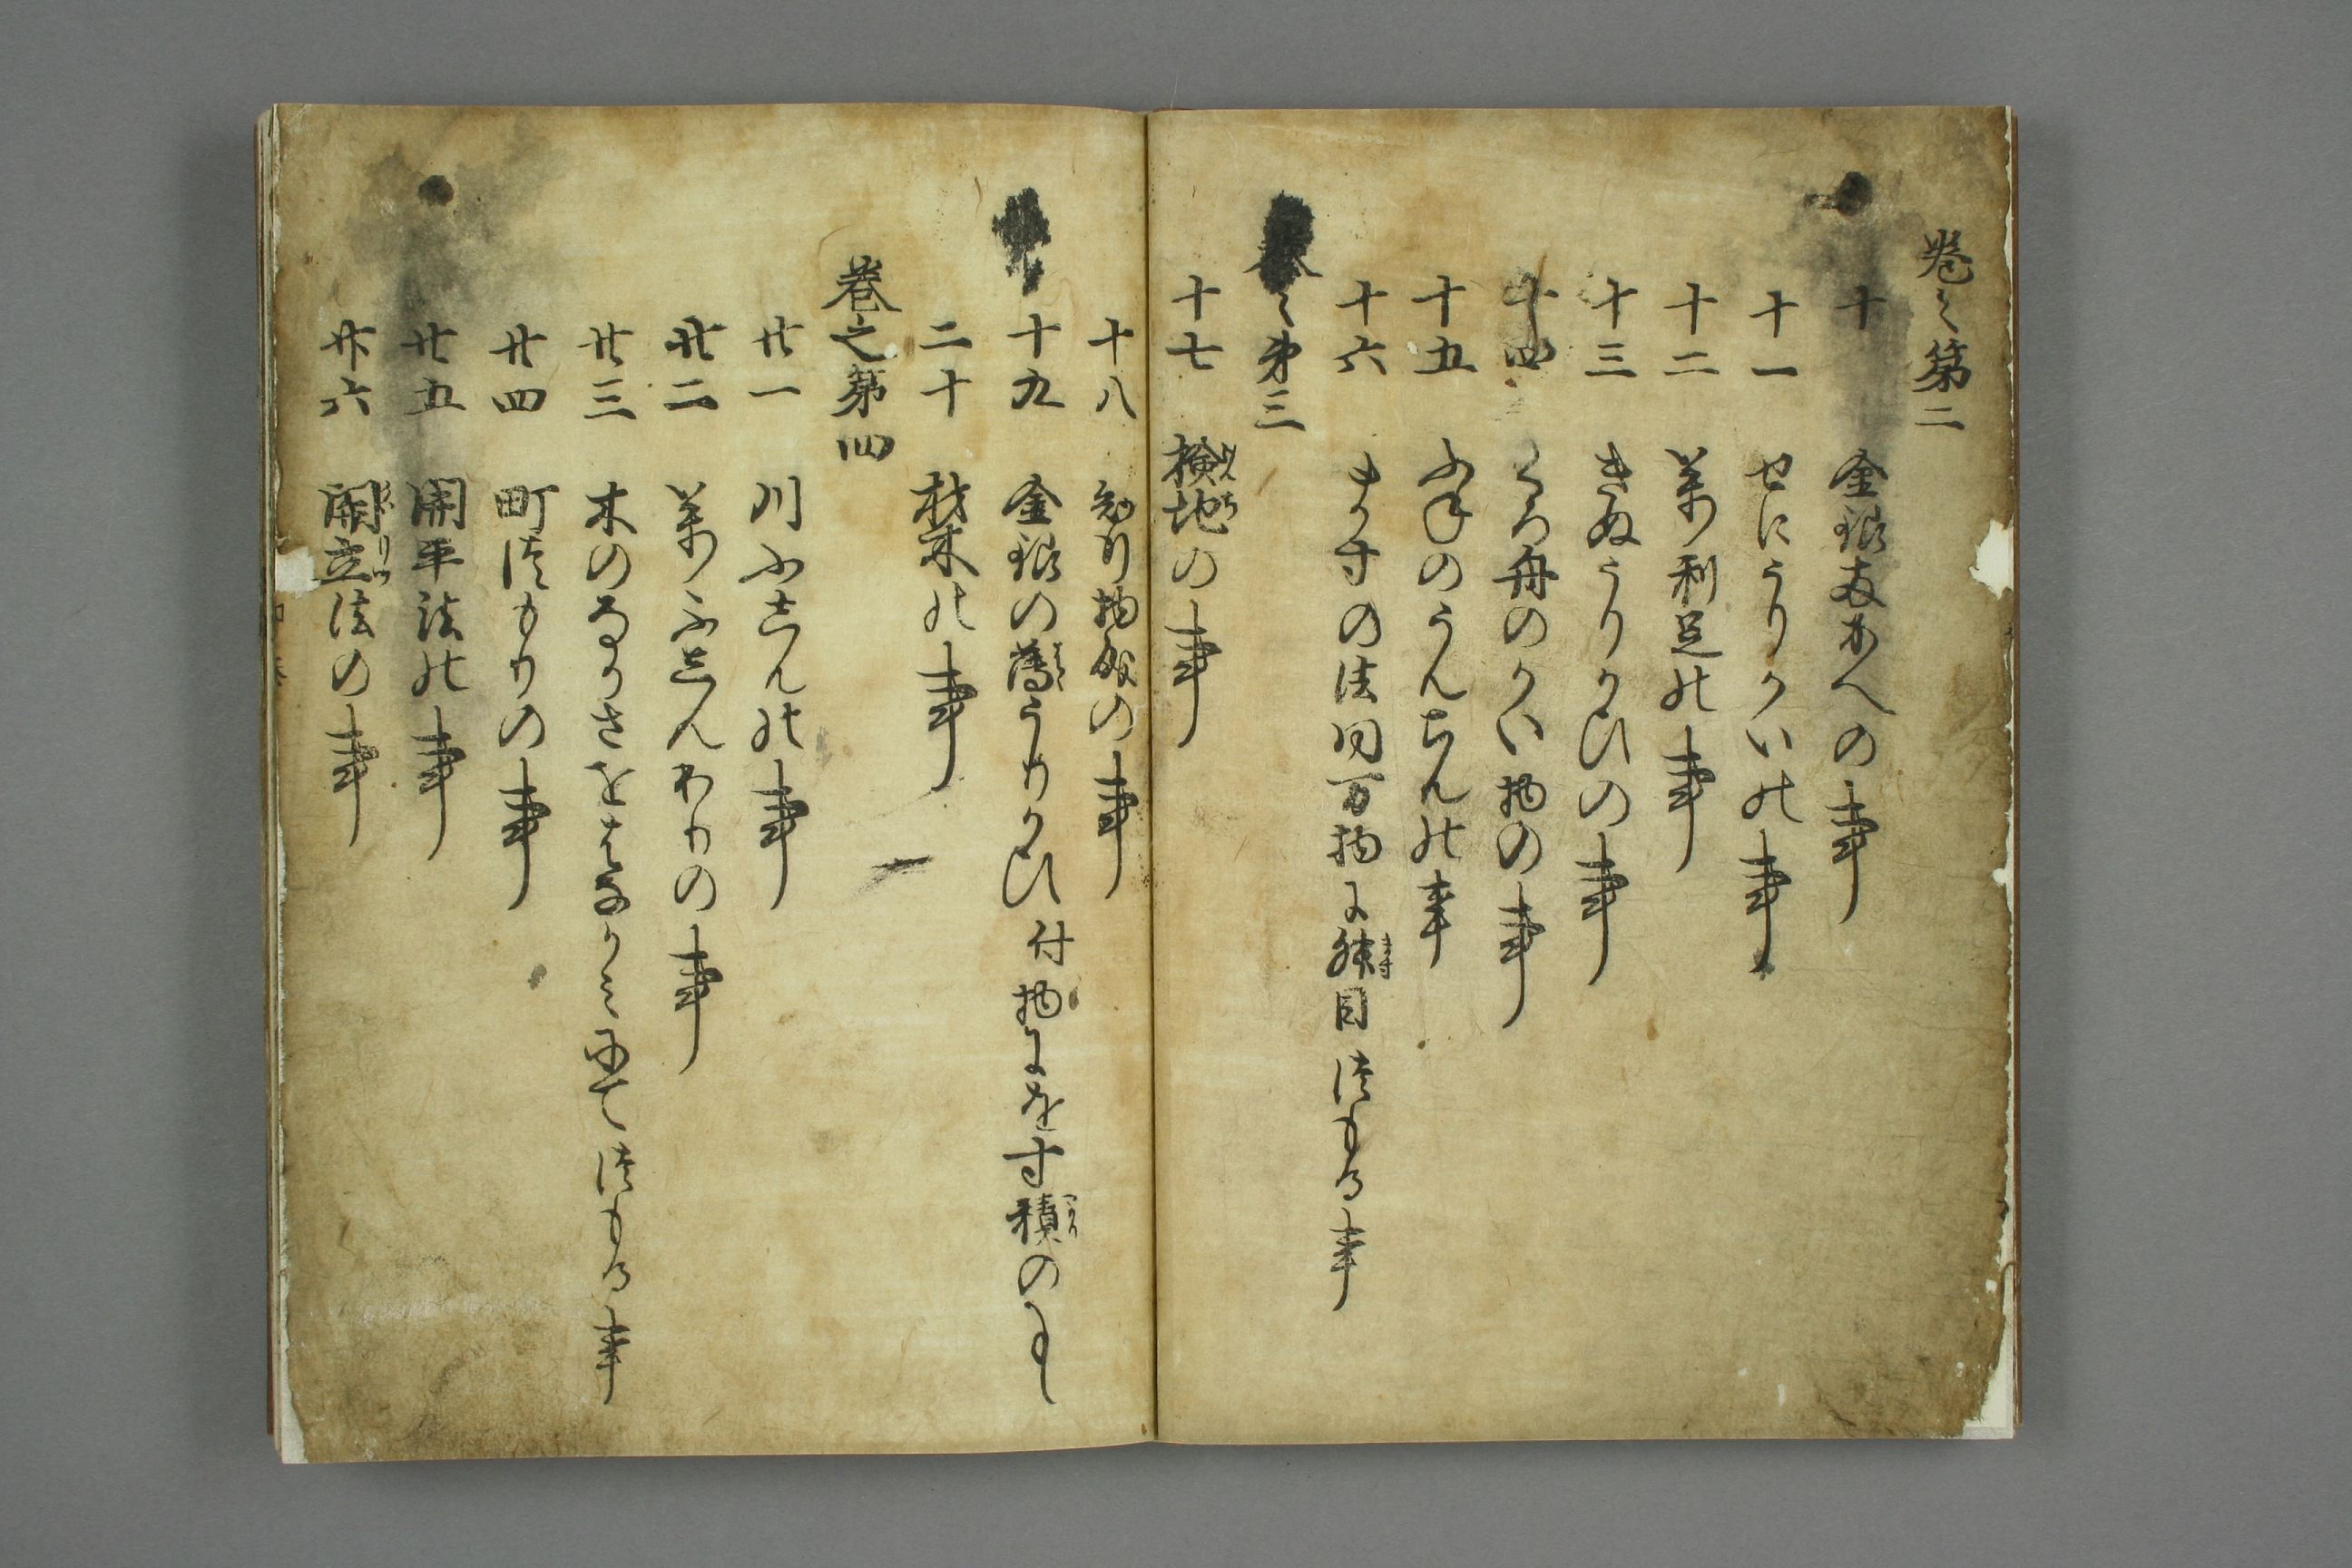 巻之第二
十 金銀両かへの事
十一 せにうりかいの事
十二 萬利足の事
十三 きぬうりかひの事
十四 くろ舟のかい物の事
十五 ふねのうんちんの事
十六 ますの法同万物に舛目つもる事
巻之第三
十七 検地の事
十八 知行物成の事
十九 金銀の薄うりかひ付物にをす積の事
二十 材木の事
巻之第四
廿一 川ふしんの事
廿二 萬ふしんわりの事
廿三 木のなかさをはなかみにてつもる事
廿四 町つもりの事
廿五 開平法の事
廿六 開立法の事